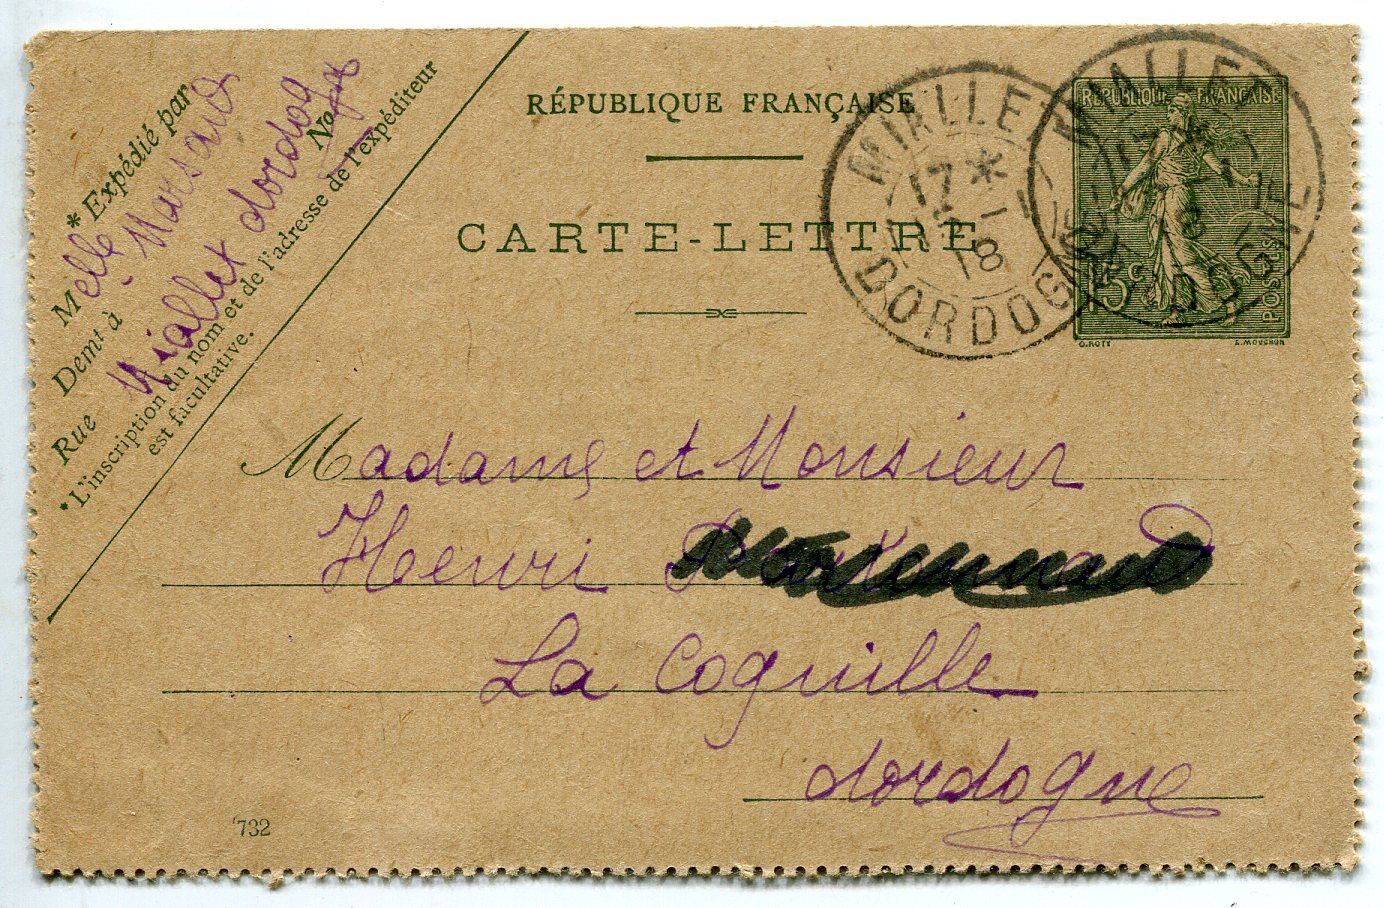 * Expédié par
Melle Marsaud
Demt à Miallet dordog
Rue No
* L'inscription du nom et de l'adresse de l'expéditeur
est facultative.
RÉPUBLIQUE FRANÇAISE
CARTE-LETTRE
MIALLET
17 *
1
18
DORDOG
MIALLET
RÉPUBLIQUE FRANÇAISE
15c
POSTES
O. ROTY E. MOUCHON
Madame et Monsieur
Henri
La Coquille
dordogne
732